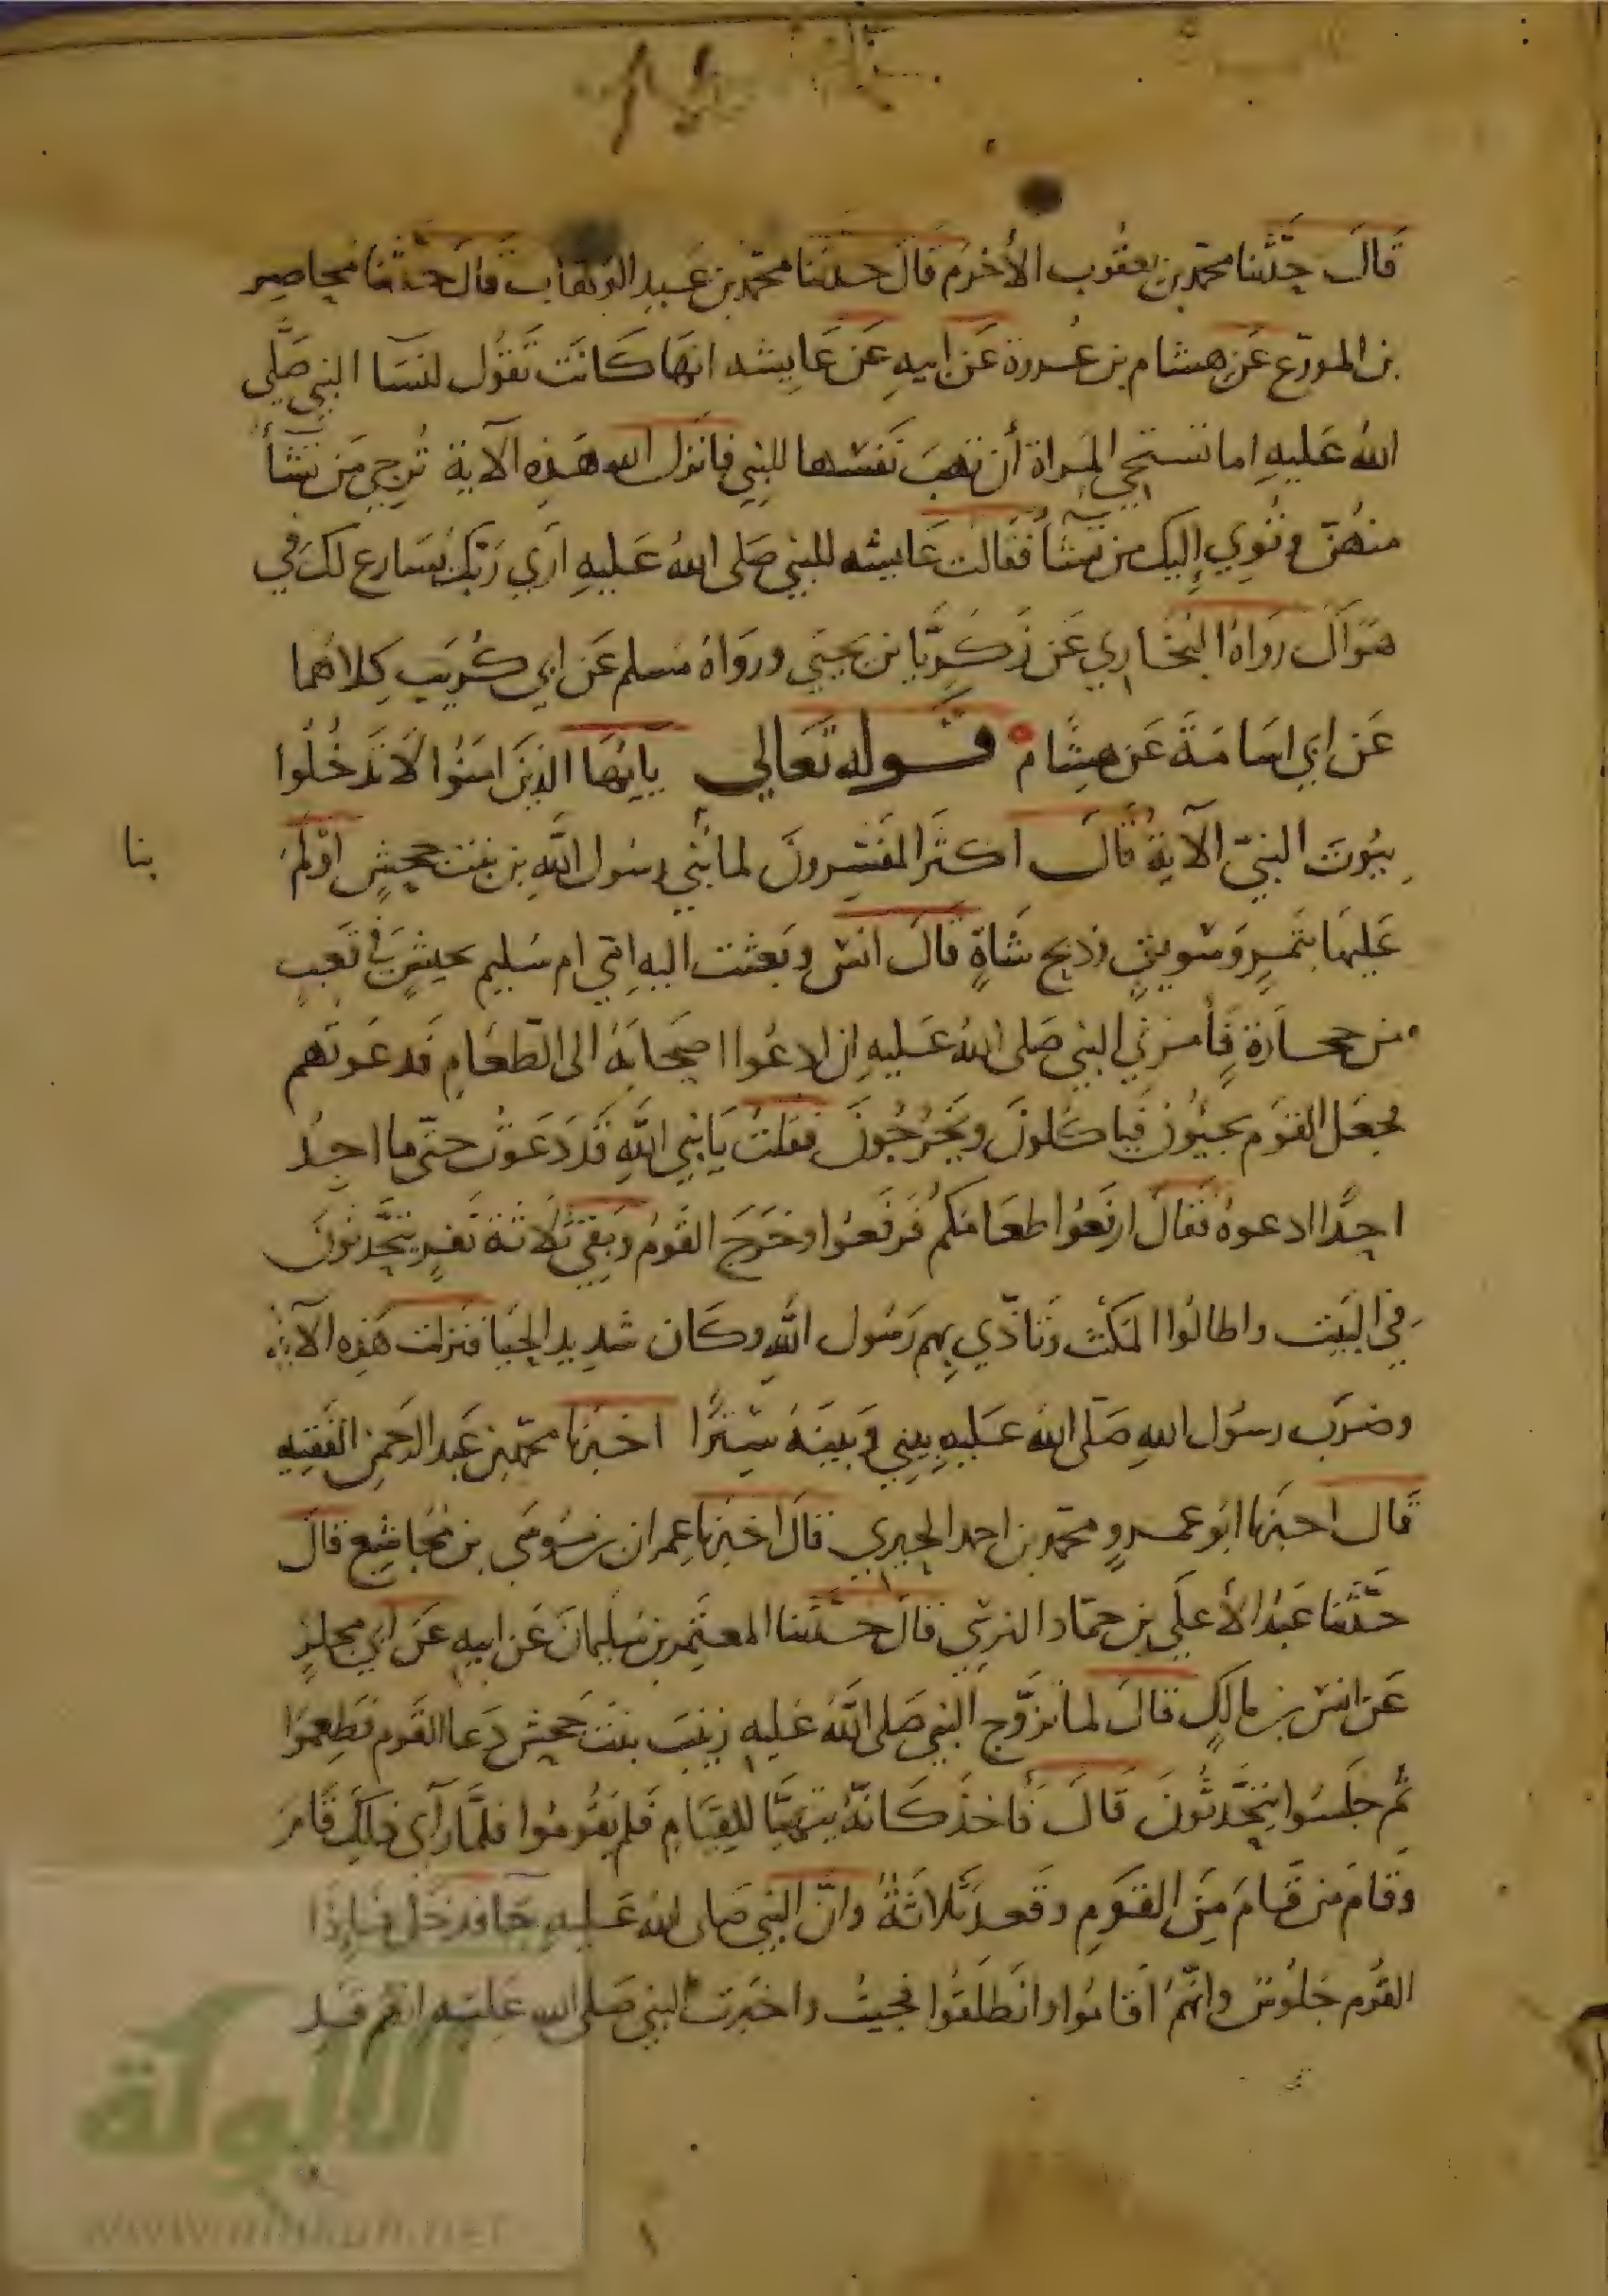 قَالَ حَدَّثَنا محمّد بن يعقُوب الأخرَم قَالَ حدثنا محمّد بن عَبدِ الوَهّاب قَالَ حدثنا مُحاصِر
بن المورّع عَن هشام بن عُروة عَن ابيهِ عَن عَايشه انهَا كَانَت تَقُول لنسَا النبي صَلَّى
اللهُ عَليهِ اما تستَحي المراة أن تهبَ نَفسَها للنبي فانزل الله هَذِهِ الآية تُرجي مَن تشَأ
منهُنّ وتُوِي إليك من تشَأ فَقالت عَايشه للنبي صَلى اللهُ عَليهِ اَرَي رَبّكَ يُسَارع لكَ في
هَوَاكَ رَوَاهُ البُخَاري عَن زَكَرِيّا بن يَحيَى ورَوَاهُ مُسلم عَن ابي كُرَيب كِلاهُما
عَن ابي اسَامَةَ عَن هِشَام قَوله تَعَالي يَايُّهَا الذِينَ امنُوا لَا تَدخُلُوا
بيُوتَ النبيّ الآيةُ قَالَ اكثَر المفَسِرونَ لما بَنَي رسُول اللهِ بزينَب بنت جَحشٍ اَوْلَمَ
بنا
عَليهَا بتَمرٍ وَسَويقٍ وذبح شَاةٍ قَالَ انسُ وبَعثت اليهِ امّي ام سُليم بحَيسٍ في تَعبٍ
من حجَارَةٍ فَأمرَني النبي صَلى اللهُ عَليهِ ان ادعُوا اصحَابَهُ الى الطّعَامِ فَدعَوتهم
فجعَل القوَم يجيُونَ فَياكُلونَ ويَخرُجُونَ فقلتُ يَا نبي اللهِ قَد دَعَوتُ حتّى ما اجدُ
احدًا ادعوهُ فَقالَ ارفَعُوا طعَامَكُم فَرفَعوا وخَرَجَ القَومُ وَبَقي ثلَاثة نَفرٍ يتحَدثونَ
في البَيت واطالُوا المكث وتَاذّي بهم رَسُول اللهِ وكَان شديد الحيَا فنزلت هَذِه الآية
وضرَب رسُول اللهِ صَلّى اللهُ عَليهِ بيني وَبينَهُ سِترًا اخبرنا محمّد بن عَبد الرحمنِ الفَقيه
قَال اخبرنا ابُو عَمروٍ محمّد بن احمد الحيري قَالَ اخبرنا عِمران بن مُوسَى بن مُجاشِع قَالَ
حَدَّثَنا عَبدُ الأعلَي بن حمّاد النرسي قَالَ حدَّثنا المعتَمِر بن سُليمانَ عَن ابيهِ عَن ابي مجلزٍ
عَن انس بن مَالكٍ قَالَ لما تزَوّج النبي صَلى اللَّهُ عَليهِ زينَبَ بنتَ جَحش دَعا القَوم فطَعِمُوا
ثُم جَلسُوا يتحَدّثونَ قَالَ فَاخذَ كَانّهُ يتهيّا للِقيَامِ فَلم يَقُومُوا فلمَّا رَآى ذَلكَ قَامَ
وقَامَ من قَامَ مِنَ القَومِ وقَعدَ ثَلاثةُ وانّ النبي صَلى اللهُ عَليهِ جَا فدخَل فَاِذَا
القَوم جَلُوسٌ وانّهُم قَامُوا وانطَلَقُوا فجيتُ واخبَرتُ النبي صَلى الله عليَهِ انهم قَد
الألوكة
www.alukah.net
١